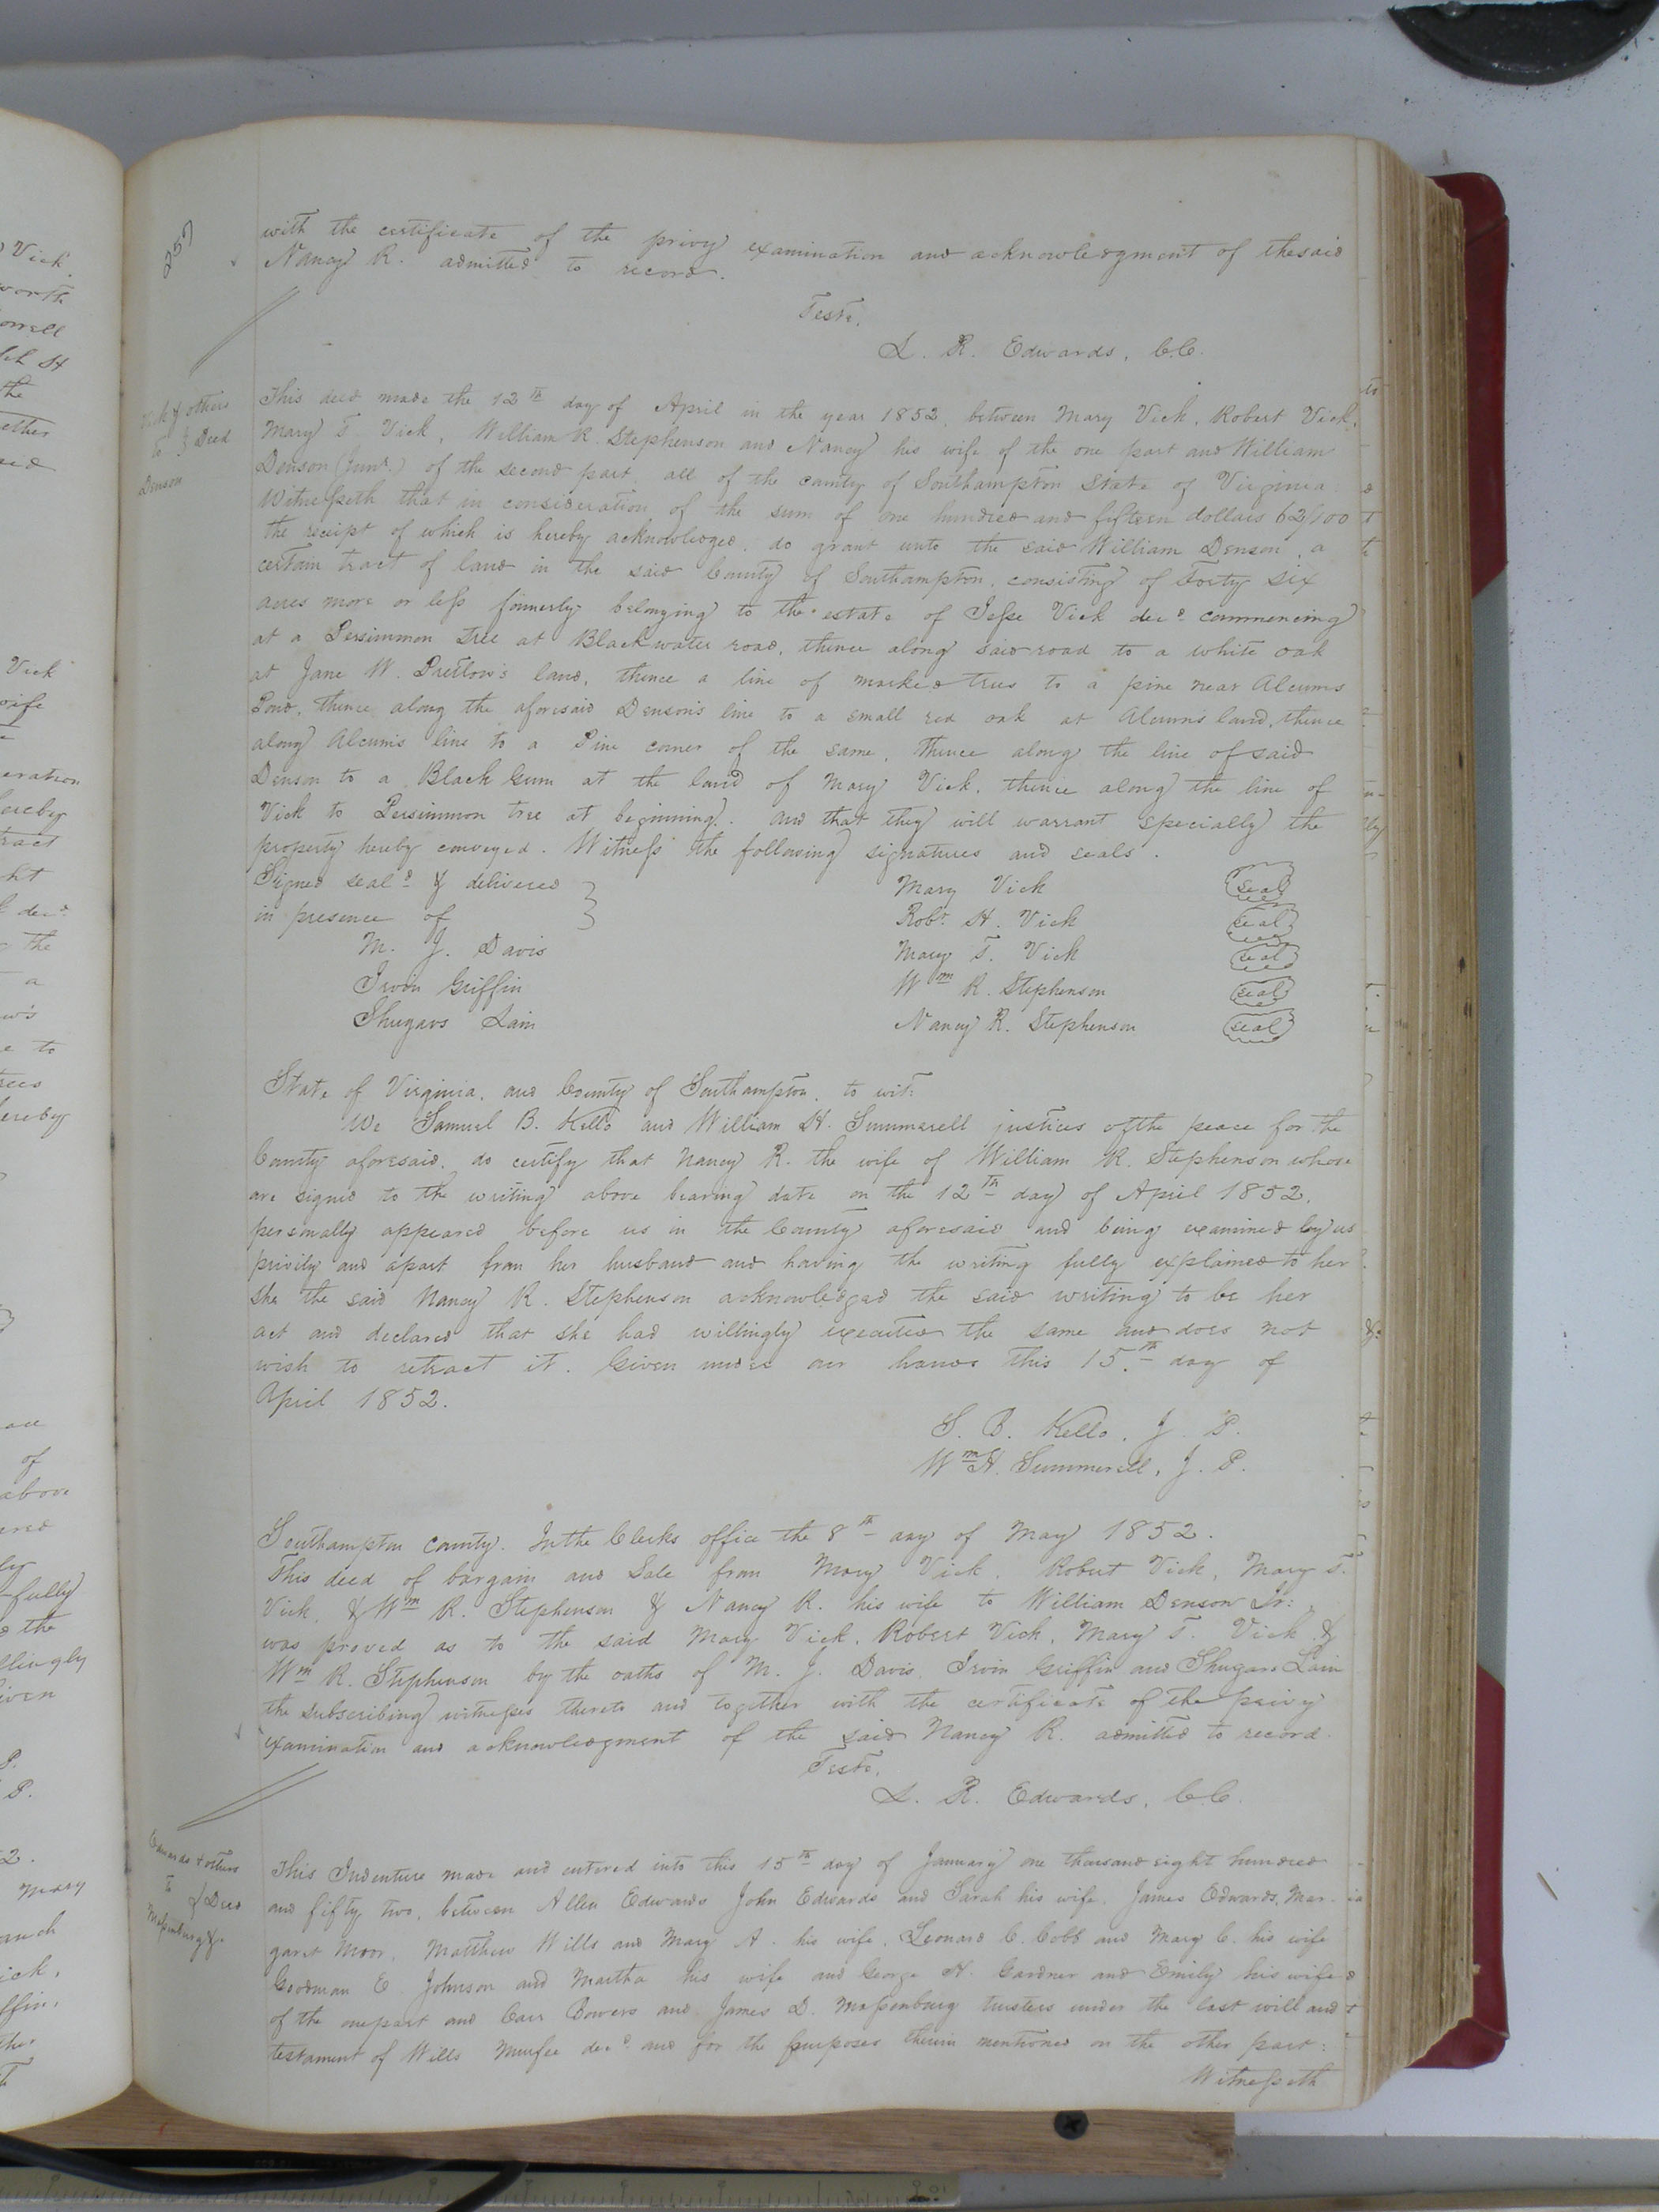 257
with the certificate of the privy examination and acknowledgment of the said
Nancy R. admitted to record.
Teste,
L. R. Edwards, C.C.
Vick & others
to } Deed
Denson
This deed made the 12th day of April in the year 1852, between Mary Vick, Robert Vick,
Mary T. Vick, William R. Stephenson and Nancy his wife of the one part and William
Denson (Junr.) of the second part, all of the county of Southampton State of Virginia:
Witnesseth that in consideration of the sum of one hundred and fifteen dollars 62/100
the receipt of which is hereby acknowledged, do grant unto the said William Denson, a
certain tract of land in the said County of Southampton, consisting of Forty six
acres more or less formerly belonging to the estate of Jesse Vick decd. commencing
at a Persimmon tree at Blackwater road, thence along said road to a white oak
at Jane W. Pretlow's land, thence a line of marked trees to a pine near Alcums
Pond, thence along the aforesaid Denson's line to a small red oak at Alcums land, thence
along Alcums line to a Pine corner of the same, thence along the line of said
Denson to a Black Gum at the land of Mary Vick, thence along the line of
Vick to Persimmon tree at beginning. And that they will warrant specially the
property hereby conveyed. Witness the following signatures and seals.
Signed seald & delivered } Mary Vick seal
in presence of Robt. H. Vick seal
M. J. Davis Mary T. Vick seal
Irvin Griffin Wm R. Stephenson seal
Shugars Lain Nancy R. Stephenson seal
State of Virginia, and County of Southampton, to wit:
We Samuel B. Kello and William H. Summerell justices of the peace for the
County aforesaid, do certify that Nancy R. the wife of William R. Stephenson whose
are signed to the writing above bearing date on the 12th day of April 1852,
personally appeared before us in the County aforesaid and being examined by us
privily and apart from her husband and having the writing fully explained to her
she the said Nancy R. Stephenson acknowledged the said writing to be her
act and declared that she had willingly executed the same and does not
wish to retract it. Given under our hands this 15th day of
April 1852.
S. B. Kello, J. P.
Wm H. Summerell, J. P.
Southampton county. In the Clerks office the 8th day of May 1852.
This deed of bargain and Sale from Mary Vick, Robert Vick, Mary T.
Vick, & Wm R. Stephenson & Nancy R. his wife to William Denson Jr:
was proved as to the said Mary Vick, Robert Vick, Mary T. Vick &
Wm R. Stephenson by the oaths of M. J. Davis, Irvin Griffin and Shugars Lain
the subscribing witnesses thereto and together with the certificate of the privy
examination and acknowledgment of the said Nancy R. admitted to record.
Teste,
L. R. Edwards, C.C.
Edwards & others
to } Deed
Massenburg &c
This Indenture made and entered into this 15th day of January one thousand eight hundred
and fifty two, between Allen Edwards John Edwards and Sarah his wife, James Edwards, Mar-
garet Moor, Matthew Wills and Mary A. his wife, Leonard C. Cobb and Mary C. his wife
Goodman E. Johnson and Martha his wife and George H. Gardner and Emily his wife
of the one part and Carr Bowers and James D. Massenburg trusters under the last will and
testament of Wills Murfee decd and for the purposes therein mentioned on the other part:
Witnesseth